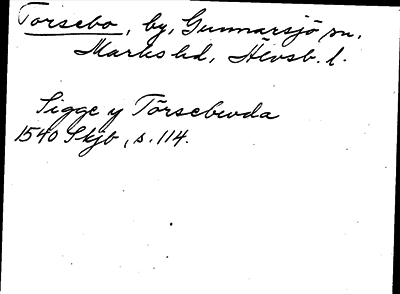 Torsebo, by, Gunnarsjö sn.
Marks hd, Älvsb. l.
Sigge y Törsebwda
1540 Skjb, s. 114.